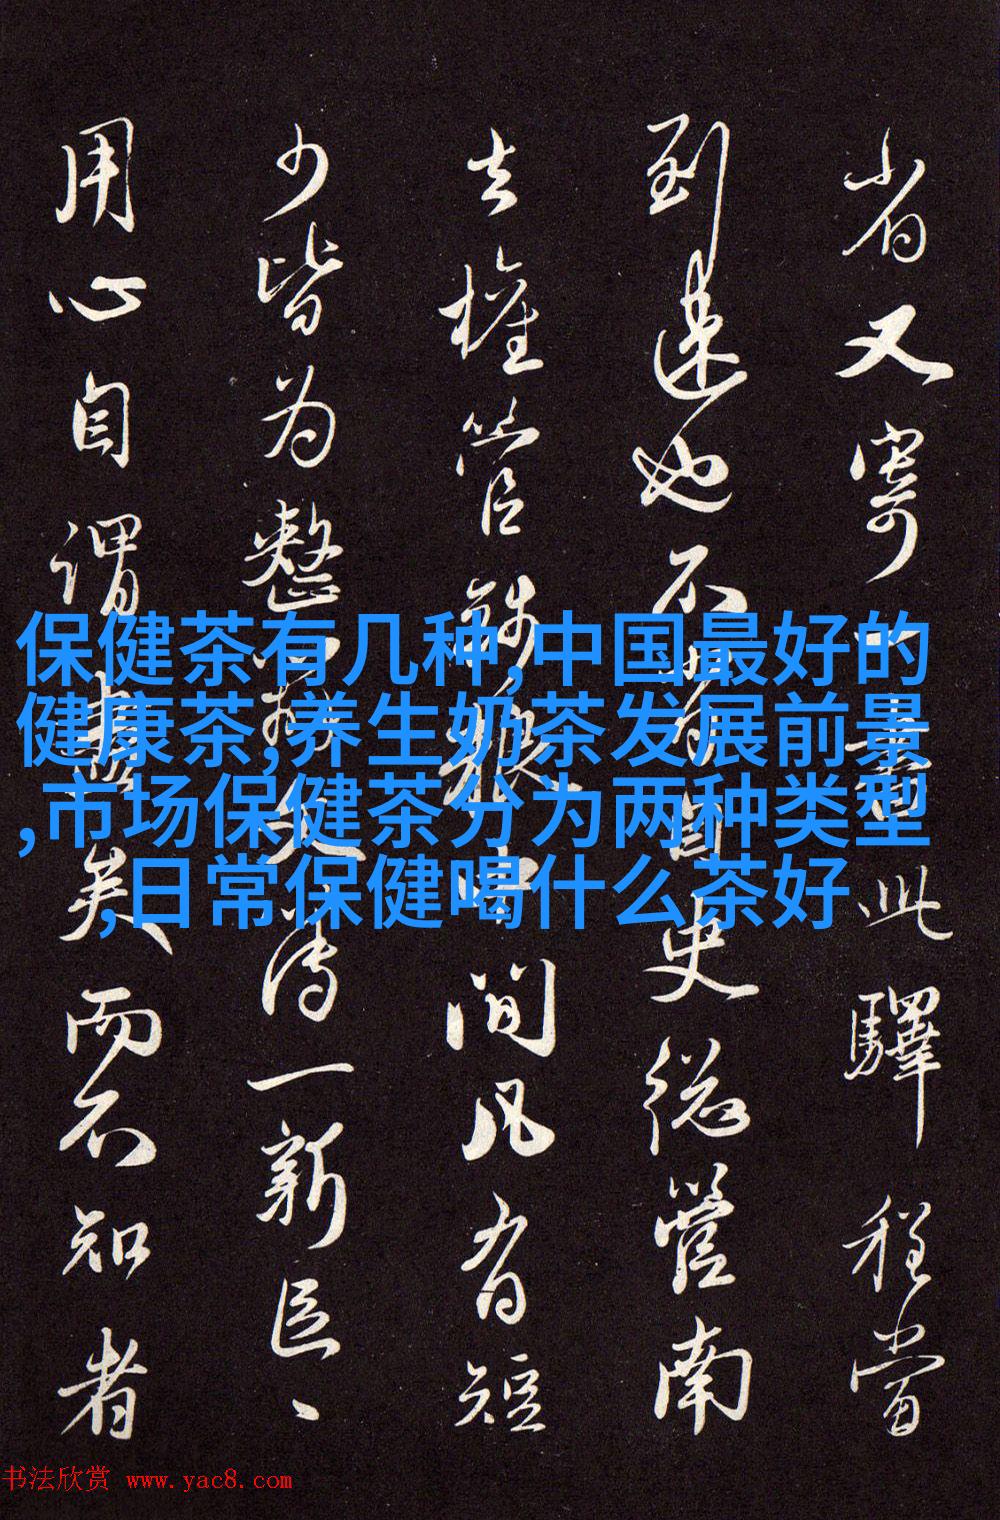 省又寄此驛程當
到速也不自史總管南
去權管間凡有短
少皆为整一新
用心自謂矣而不知者
保健茶有几种,中国最好的
健康茶,养生奶茶发展前景
,市场保健茶分为两种类型
,日常保健喝什么茶好
书法欣赏 www.yac8.com